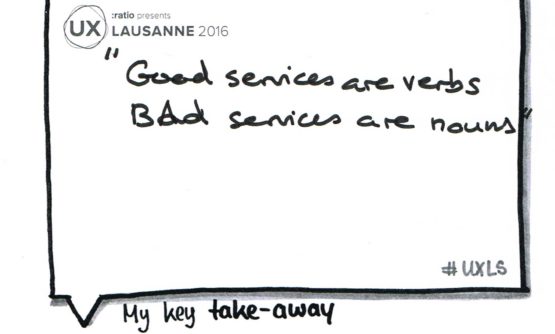 :ratio presents
UX LAUSANNE 2016
"Good services are verbs
Bad services are nouns"
#UXLS
My key take-away